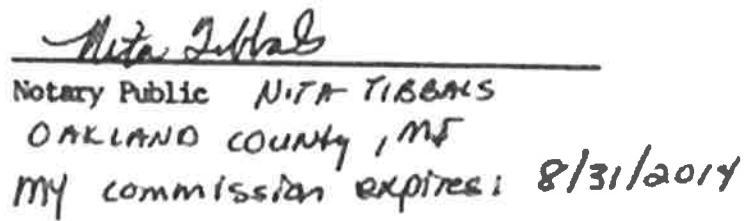 Nita Tibbals
Notary Public NITA TIBBALS
OAKLAND COUNTY, MI
MY commission expires: 8/31/2014